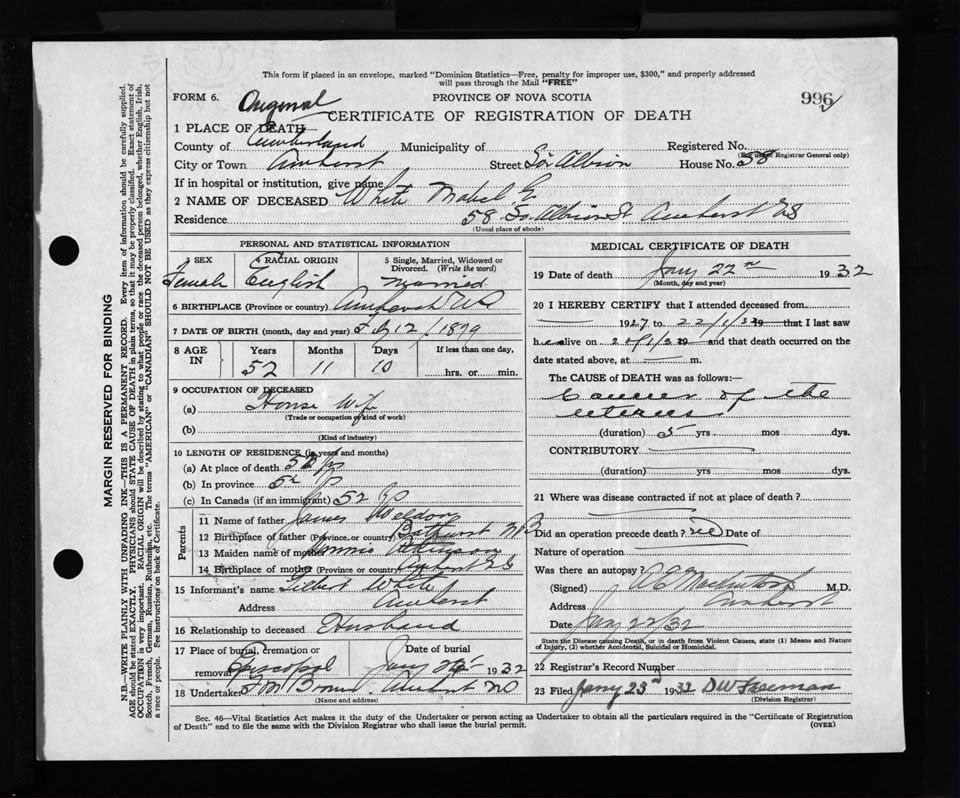 This form if placed in an envelope, marked "Dominion Statistics—Free, penalty for improper use, $300," and properly addressed
will pass through the Mail "FREE"
FORM 6. Original PROVINCE OF NOVA SCOTIA 996
CERTIFICATE OF REGISTRATION OF DEATH
1 PLACE OF DEATH
County of Cumberland Municipality of Registered No.
(For use of Registrar General only)
City or Town Amherst Street So. Albion House No. 58
If in hospital or institution, give name
2 NAME OF DECEASED White Mabel E.
Residence 58 So. Albion St Amherst NS
(Usual place of abode)
PERSONAL AND STATISTICAL INFORMATION
3 SEX 4 RACIAL ORIGIN 5 Single, Married, Widowed or
Divorced. (Write the word)
Female English Married
6 BIRTHPLACE (Province or country)
7 DATE OF BIRTH (month, day and year) 12/1879
8 AGE IN Years Months Days If less than one day,
52 11 10 hrs. or min.
9 OCCUPATION OF DECEASED
(a) House Wife
(Trade or occupation or kind of work)
(b)
(Kind of industry)
10 LENGTH OF RESIDENCE (in years and months)
(a) At place of death 52
(b) In province 52
(c) In Canada (if an immigrant) 52
Parents
11 Name of father James Weldon
12 Birthplace of father (Province, or country) Bathurst NB
13 Maiden name of mother
14 Birthplace of mother (Province or country) Amherst NS
15 Informant's name Gilbert White
Address Amherst
16 Relationship to deceased Husband
17 Place of burial, cremation or Date of burial
removal Episcopal Jany 1932
18 Undertaker Amherst NS
(Name and address)
MEDICAL CERTIFICATE OF DEATH
19 Date of death Jany 22nd 1932
(Month, day and year)
20 I HEREBY CERTIFY that I attended deceased from
1927 to 22/1/32 19 that I last saw
h alive on 19 and that death occurred on the
date stated above, at m.
The CAUSE of DEATH was as follows:—
Cancer of the
uterus
(duration) 5 yrs mos dys.
CONTRIBUTORY
(duration) yrs mos dys.
21 Where was disease contracted if not at place of death?
Did an operation precede death? no Date of
Nature of operation
Was there an autopsy?
(Signed) M.D.
Address Amherst
Date Jany 22/32
State the Disease causing Death, or in death from Violent Causes, state (1) Means and Nature
of Injury, (2) whether Accidental, Suicidal or Homicidal.
22 Registrar's Record Number
23 Filed Jany 23rd 1932 DW Freeman
(Division Registrar)
Sec. 46—Vital Statistics Act makes it the duty of the Undertaker or person acting as Undertaker to obtain all the particulars required in the "Certificate of Registration
of Death" and to file the same with the Division Registrar who shall issue the burial permit. (OVER)
MARGIN RESERVED FOR BINDING
N.B.—WRITE PLAINLY WITH UNFADING INK—THIS IS A PERMANENT RECORD. Every item of information should be carefully supplied.
AGE should be stated EXACTLY. PHYSICIANS should STATE CAUSE OF DEATH in plain terms, so that it may be properly classified. Exact statement of
OCCUPATION is very important. RACIAL ORIGIN will be described by stating to what people or race the deceased person belonged, whether English, Irish,
Scotch, French, German, Russian, Ruthenian, etc. The terms "AMERICAN" or "CANADIAN" SHOULD NOT BE USED as they express citizenship but not
a race or people. See instructions on back of Certificate.